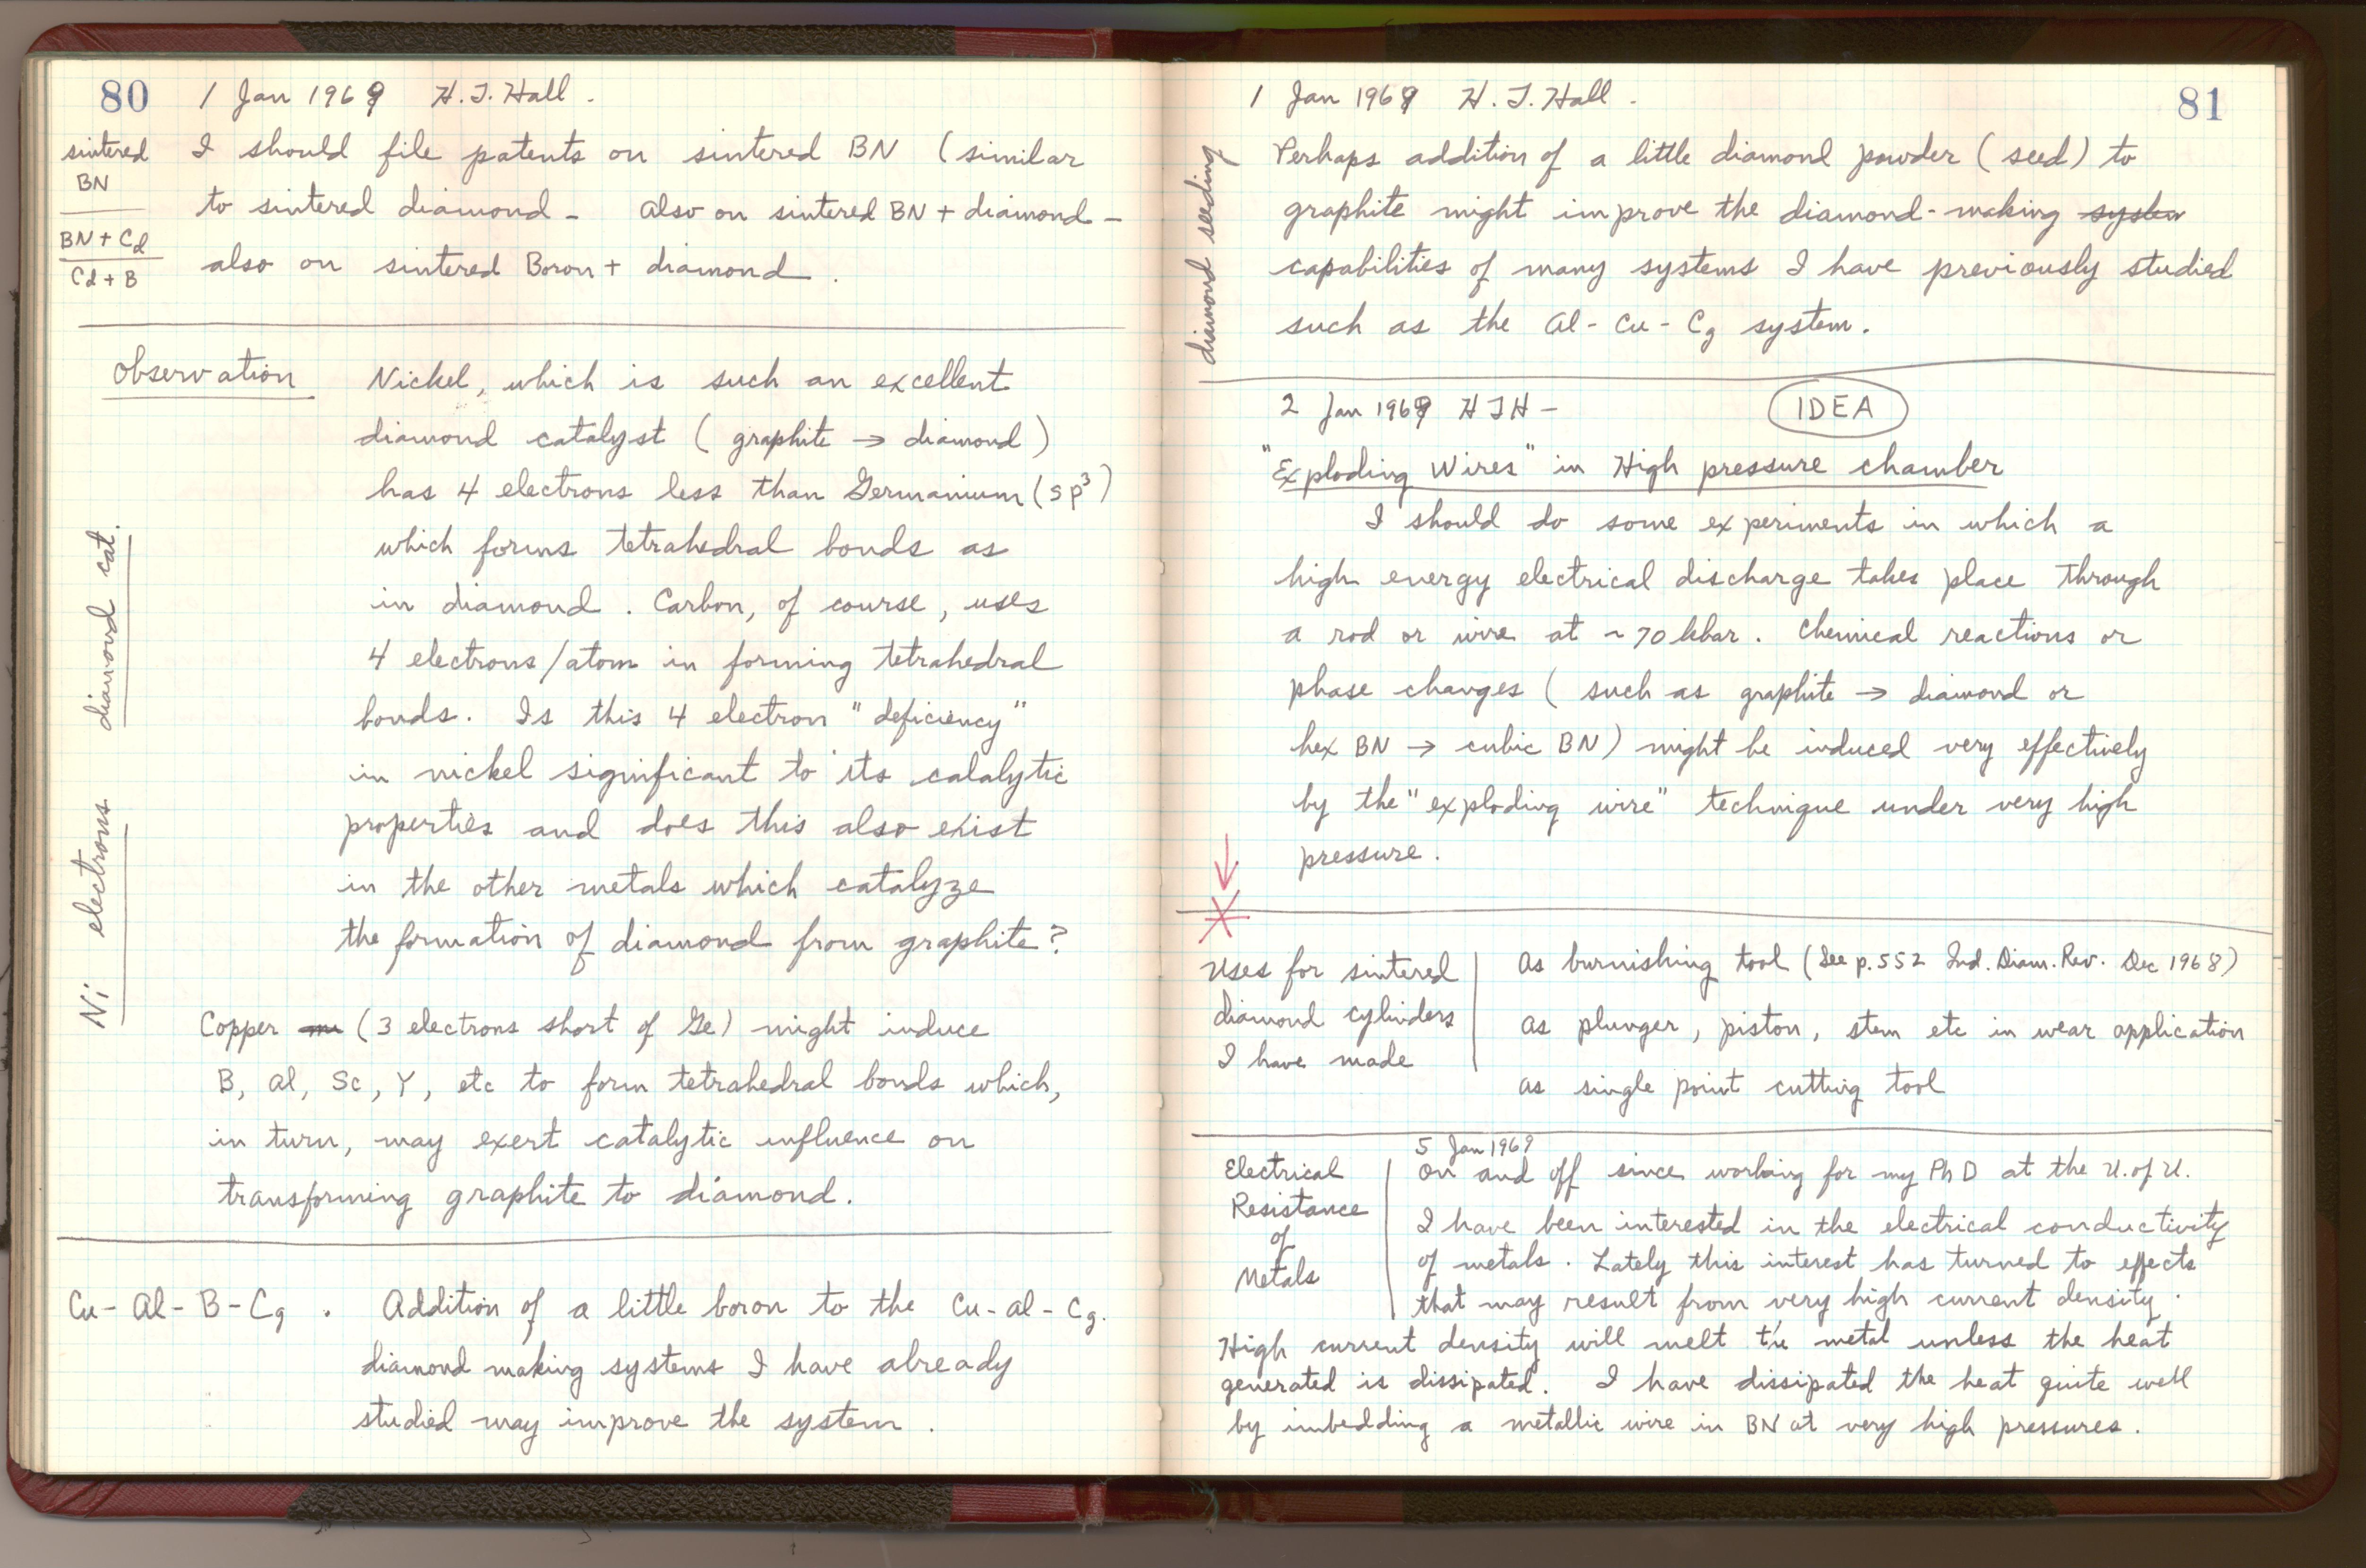 80 1 Jan 1969 H.T. Hall.
sintered
BN
BN + Cd
Cd + B
I should file patents on sintered BN (similar
to sintered diamond - also on sintered BN + diamond -
also on sintered Boron + diamond.
Observation
Nickel, which is such an excellent
diamond catalyst (graphite → diamond)
has 4 electrons less than Germanium (sp³)
which forms tetrahedral bonds as
in diamond. Carbon, of course, uses
4 electrons/atom in forming tetrahedral
bonds. Is this 4 electron "deficiency"
in nickel significant to its catalytic
properties and does this also exist
in the other metals which catalyze
the formation of diamond from graphite?
Ni electrons diamond cat.
Copper (3 electrons short of Ge) might induce
B, Al, Sc, Y, etc to form tetrahedral bonds which,
in turn, may exert catalytic influence on
transforming graphite to diamond.
Cu-Al-B-Cg. Addition of a little boron to the Cu-Al-Cg.
diamond making systems I have already
studied may improve the system.
1 Jan 1969 H.T. Hall. 81
diamond seeding
Perhaps addition of a little diamond powder (seed) to
graphite might improve the diamond-making system
capabilities of many systems I have previously studied
such as the Al-Cu-Cg system.
2 Jan 1969 HTH - IDEA
"Exploding Wires" in High pressure chamber
I should do some experiments in which a
high energy electrical discharge takes place through
a rod or wire at ~70 kbar. Chemical reactions or
phase changes (such as graphite → diamond or
hex BN → cubic BN) might be induced very effectively
by the "exploding wire" technique under very high
pressure.
Uses for sintered
diamond cylinders
I have made
As burnishing tool (See p.552 Ind. Diam. Rev. Dec 1968)
as plunger, piston, stem etc in wear application
as single point cutting tool
Electrical
Resistance
of
Metals
5 Jan 1969
On and off since working for my PhD at the U. of U.
I have been interested in the electrical conductivity
of metals. Lately this interest has turned to effects
that may result from very high current density.
High current density will melt the metal unless the heat
generated is dissipated. I have dissipated the heat quite well
by imbedding a metallic wire in BN at very high pressures.